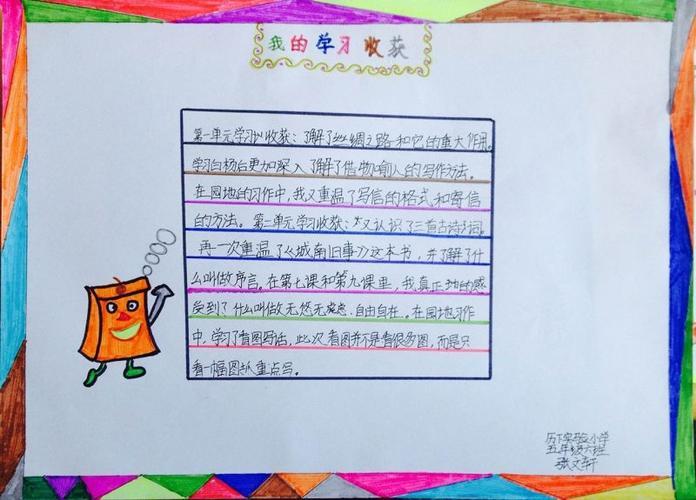 我的学习收获
第一单元学习收获：了解了丝绸之路和它的重大作用。
学习白杨后更加深入了解了借物喻人的写作方法。
在园地的习作中，我又重温了写信的格式和寄信
的方法。第二单元学习收获：又认识了三首古诗词。
再一次重温了《城南旧事》这本书，并了解了什
么叫做序言。在第七课和第九课里，我真正地的感
受到了什么叫做无悠无虑、自由自在。在园地习作
中，学习了看图写话，此次看图并不是看很多图，而是只
看一幅图抓重点写。
历下实验小学
五年级六班
张文轩